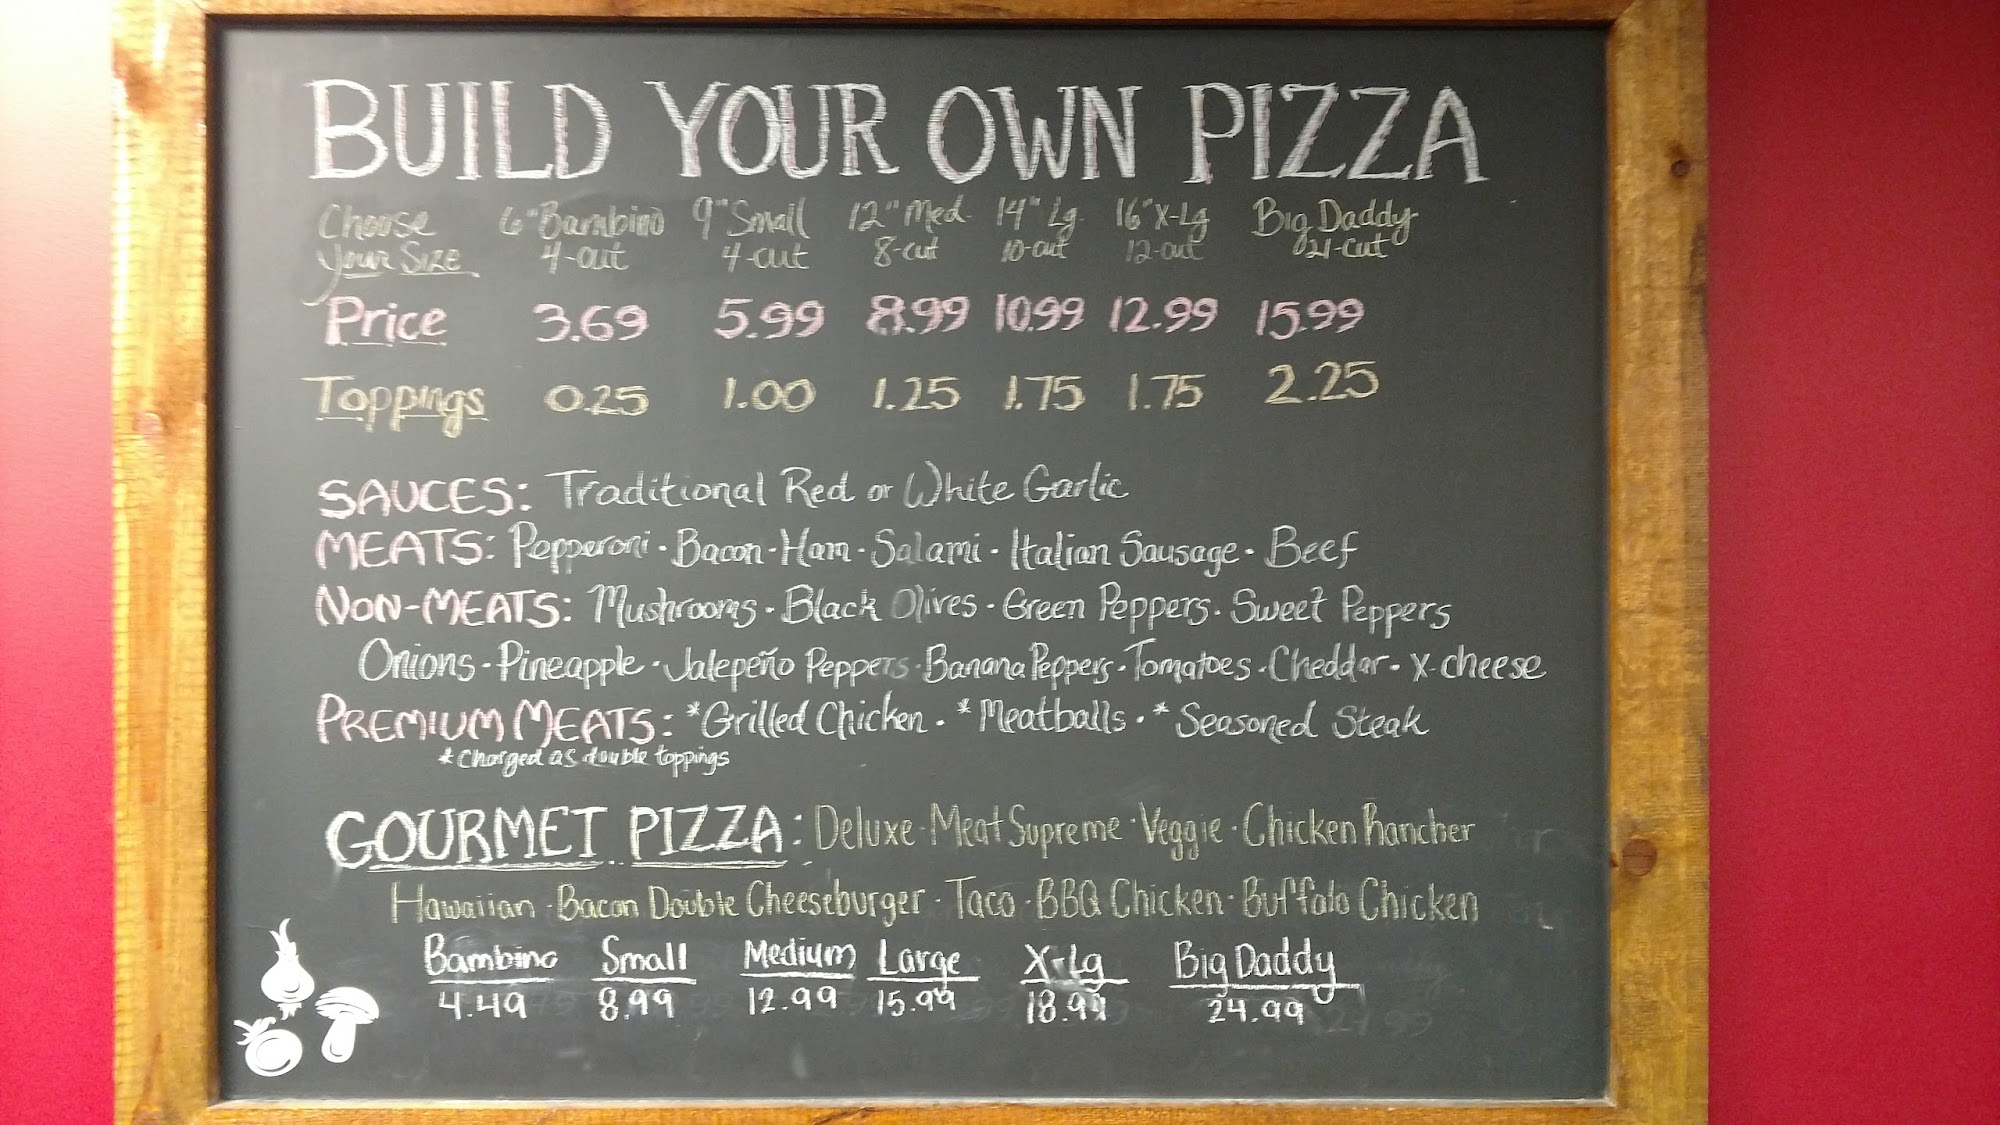 BUILD YOUR OWN PIZZA
Choose Your Size 6" Bambino 4-cut 9" Small 4-cut 12" Med. 8-cut 14" Lg. 10-cut 16" X-Lg 12-cut Big Daddy 21-cut
Price 3.69 5.99 8.99 10.99 12.99 15.99
Toppings 0.25 1.00 1.25 1.75 1.75 2.25
SAUCES: Traditional Red or White Garlic
MEATS: Pepperoni · Bacon · Ham · Salami · Italian Sausage · Beef
NON-MEATS: Mushrooms · Black Olives · Green Peppers · Sweet Peppers
Onions · Pineapple · Jalepeño Peppers · Banana Peppers · Tomatoes · Cheddar · X-cheese
PREMIUM MEATS: *Grilled Chicken · *Meatballs · *Seasoned Steak
*charged as double toppings
GOURMET PIZZA: Deluxe · Meat Supreme · Veggie · Chicken Rancher
Hawaiian · Bacon Double Cheeseburger · Taco · BBQ Chicken · Buffalo Chicken
Bambino Small Medium Large X-Lg Big Daddy
4.49 8.99 12.99 15.99 18.99 24.99